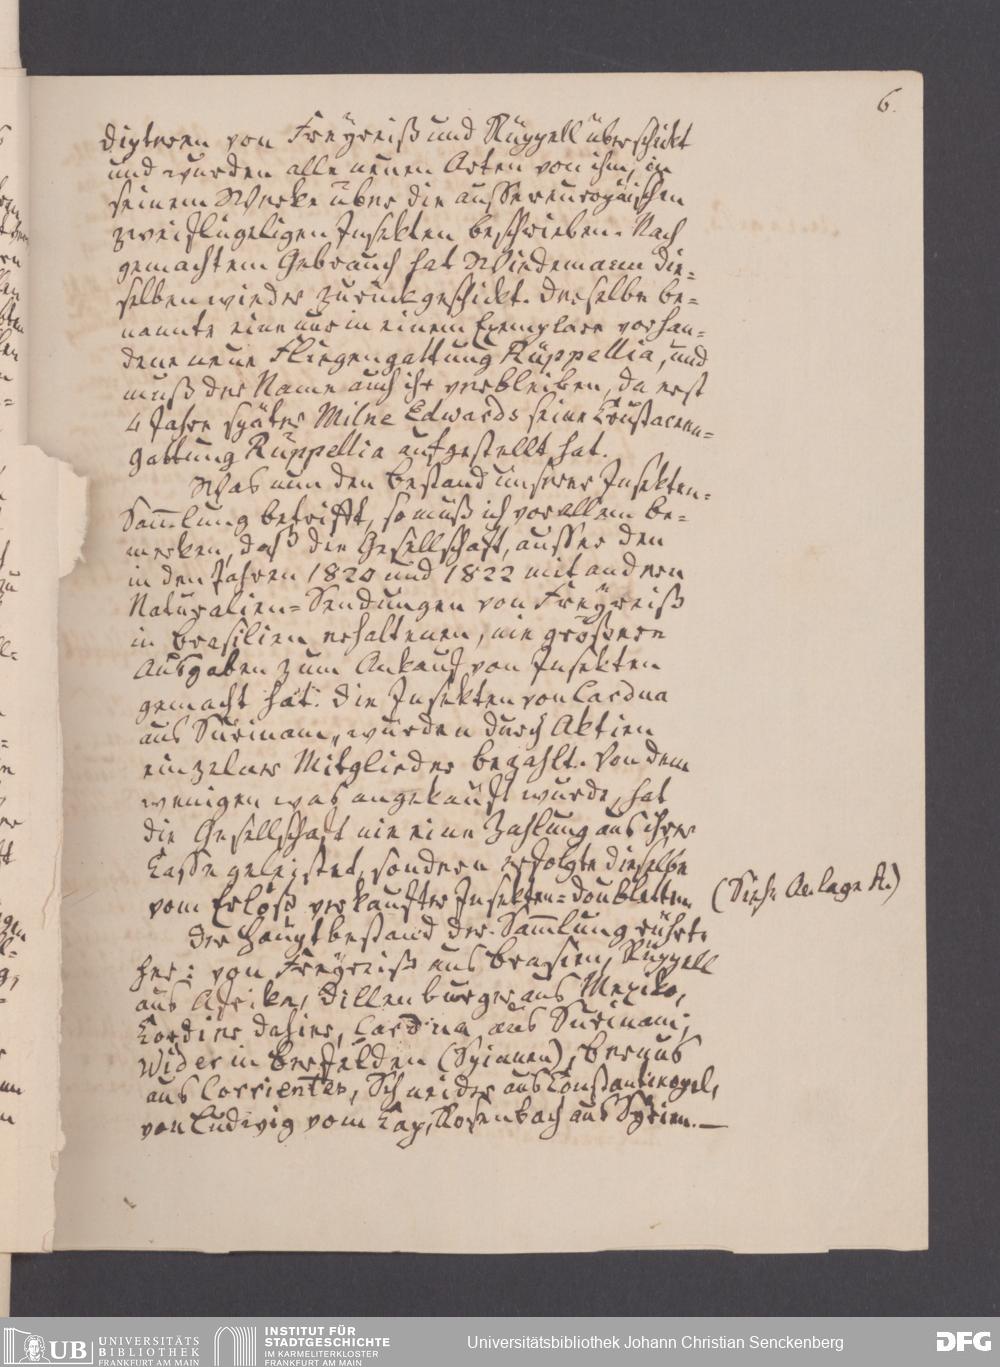 6.
Dipteren von Freÿreiß und Rüppell überschickt
und wurden alle neuen Arten von ihm, in
seinem Werke über die aussereuropäischen
zweiflügeligen Insekten beschrieben. Nach
gemachtem Gebrauch hat Wiedemann die-
selben wieder zurückgeschickt. Derselbe be-
nannte eine nur in einem Exemplare vorhan-
dene neue Fliegengattung Rüppellia, und
muß der Name auch ihr verbleiben, da erst
4 Jahre später Milne Edwards seine Crustaceen-
gattung Rüppellia aufgestellt hat.
Was nun den Bestand unserer Insekten-
Sam̅lung betrifft, so muß ich vor allem be-
merken, daß die Gesellschaft, ausser den
in den Jahren 1820 und 1822 mit andern
Naturalien=Sendungen von Freÿreiß
in Brasilien erhaltenen, nie größere
Ausgaben zum Ankauf von Insekten
gemacht hat. Die Insekten von Cardua
aus Surinam, wurden durch Aktien
einzelner Mitglieder bezahlt. Von dem
wenigen was angekauft wurde, hat
die Gesellschaft nie eine Zahlung aus ihrer
Casse geleistet, sondern erfolgte dieselbe
vom Erlöß verkaufter Insekten=Doubletten (Sieh. Anlage A.)
Der Hauptbestand der Sam̅lung rührt
her: von Freÿreiß aus Brasien, Rüppell
aus Afrika, Dillenburger aus Mexiko,
Cordier dahier, Cardua aus Surinam;
Wider in Beerfelden (Spinnen), Bernus
aus Corrientes, Schneider aus Constantinopel,
von Ludwig vom Cap, Rosenbach aus Syrien. —
UB UNIVERSITÄTS
BIBLIOTHEK
FRANKFURT AM MAIN
INSTITUT FÜR
STADTGESCHICHTE
IM KARMELITERKLOSTER
FRANKFURT AM MAIN
Universitätsbibliothek Johann Christian Senckenberg
DFG